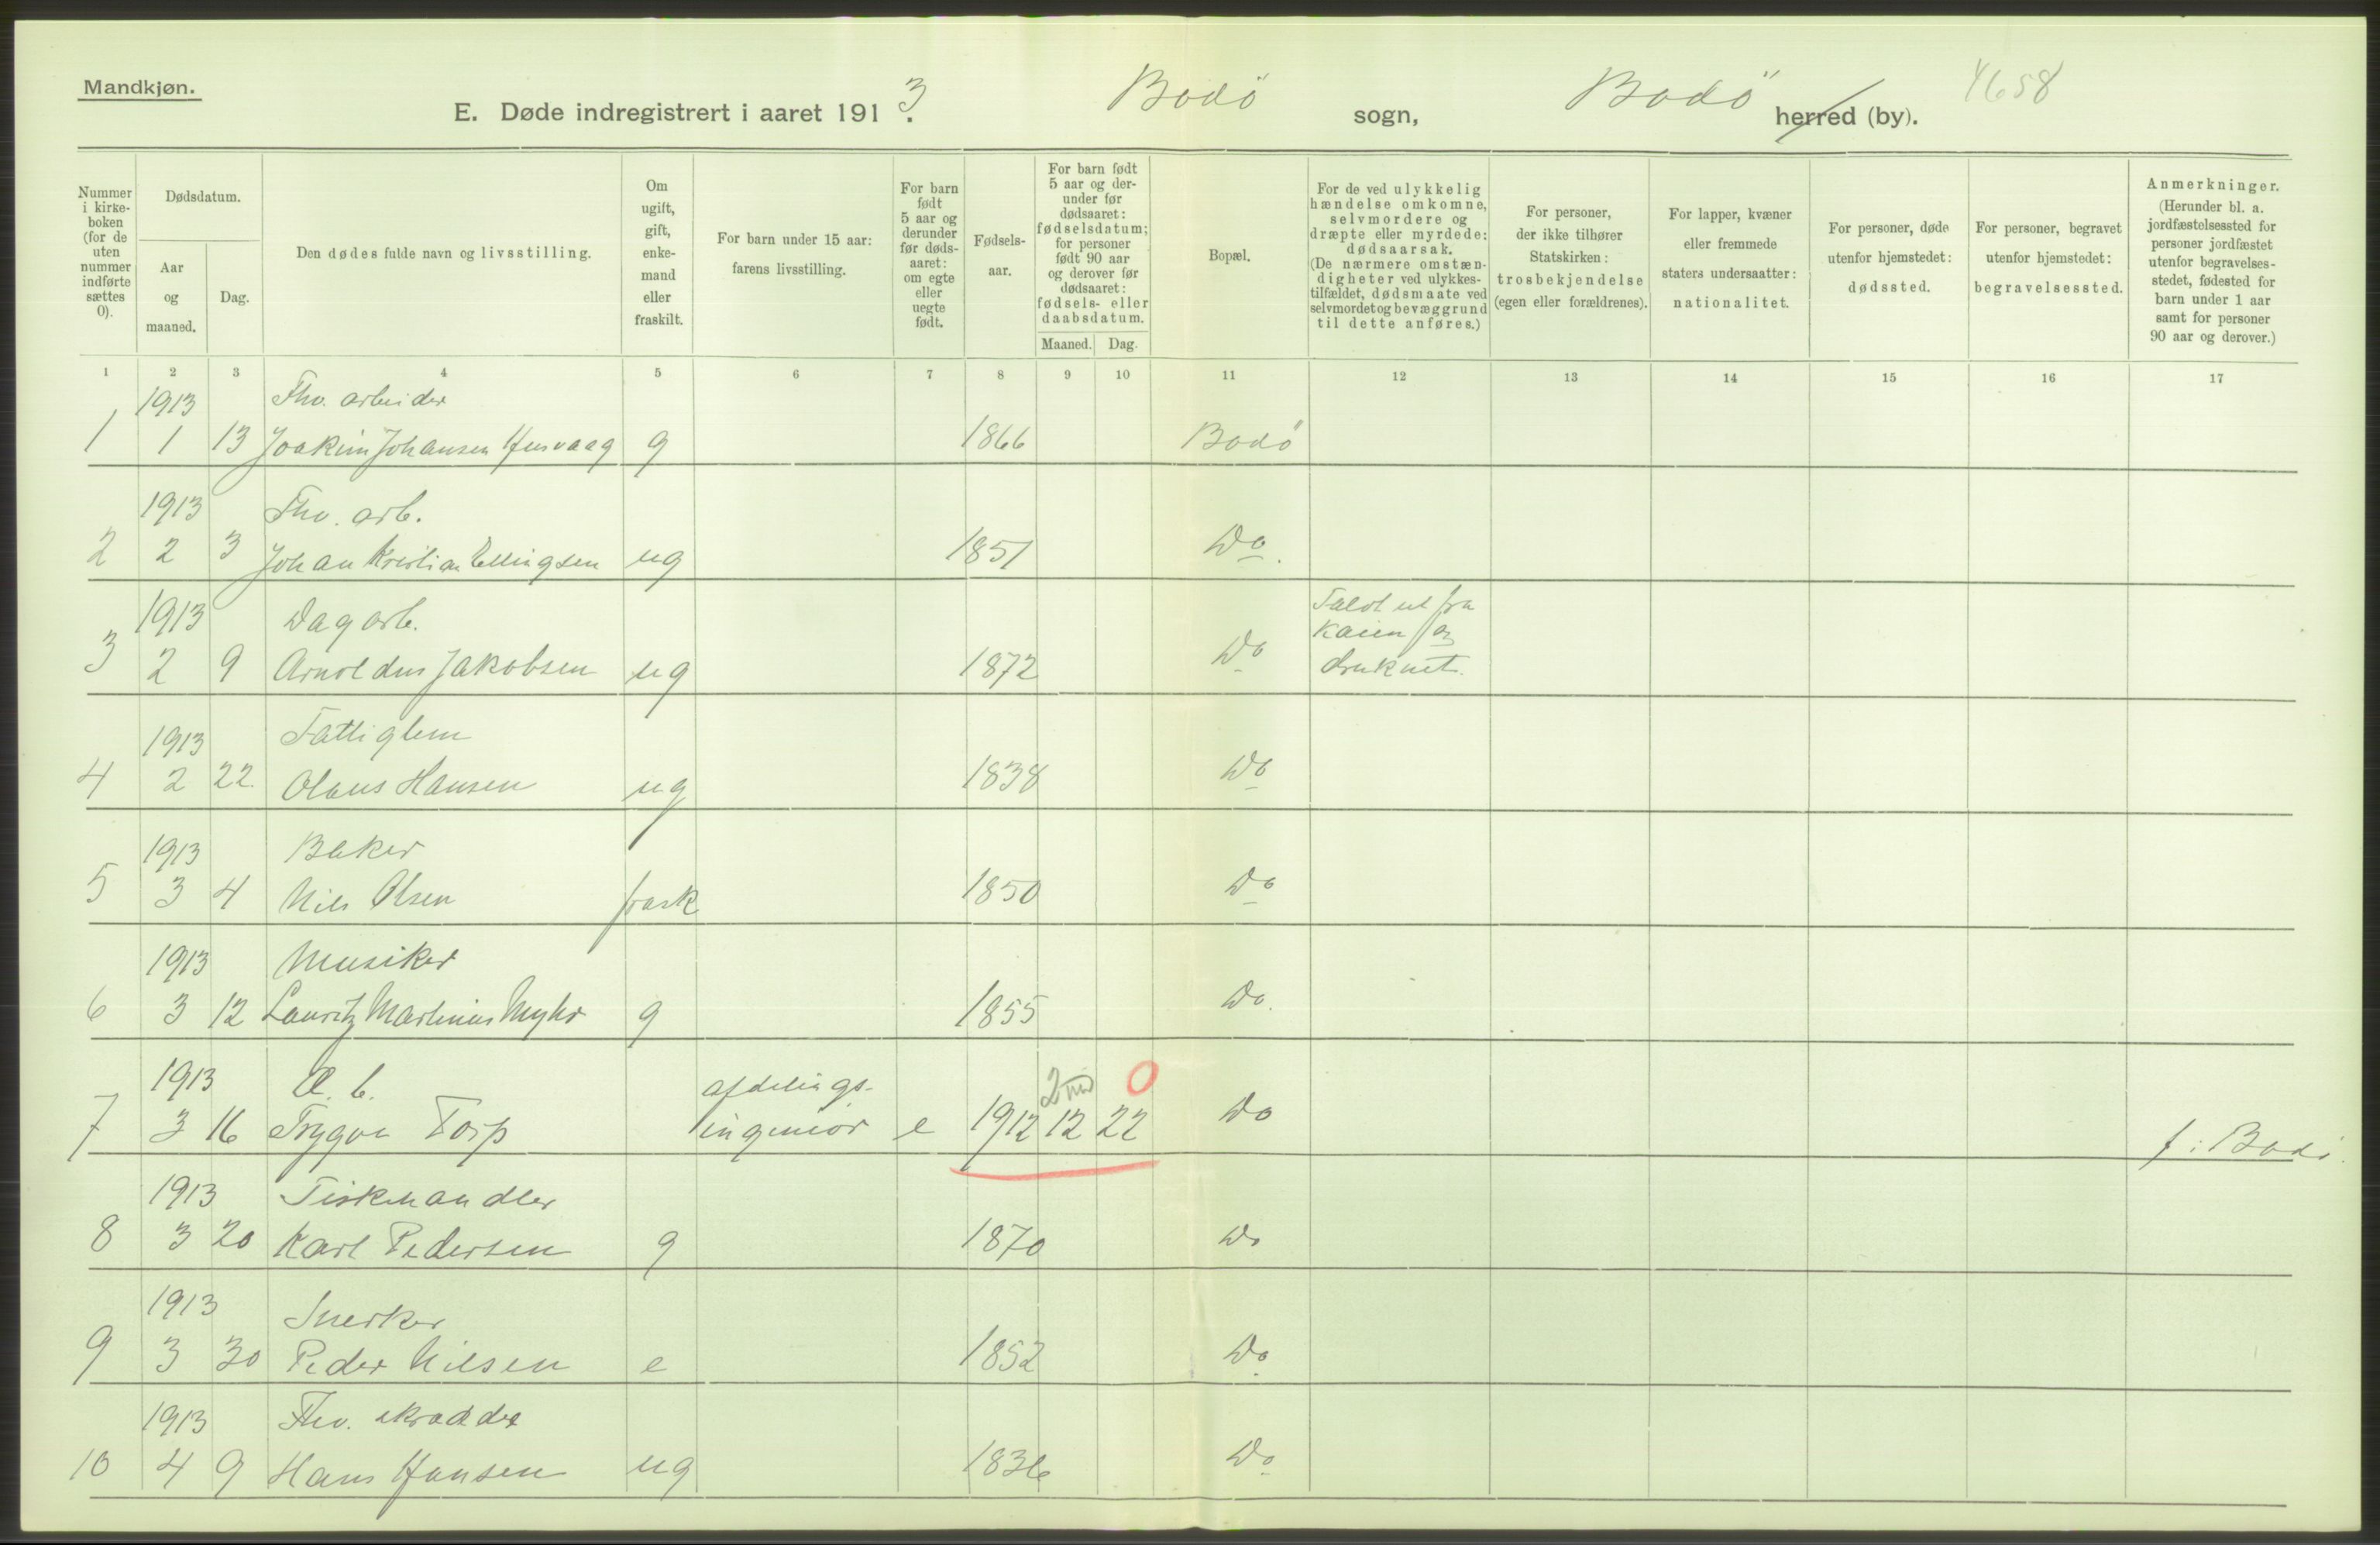 Mandkjøn.
E. Døde indregistrert i aaret 1913. Bodö sogn, Bodö herred (by). 4658
Nummer i kirke-boken (for de uten nummer indførte sættes 0).
Dødsdatum.
Aar og maaned.
Dag.
Den dødes fulde navn og livsstilling.
Om ugift, gift, enke-mand eller fraskilt.
For barn under 15 aar: farens livsstilling.
For barn født 5 aar og derunder før døds-aaret: om egte eller uegte født.
Fødsels-aar.
For barn født 5 aar og der-under før dødsaaret: fødselsdatum; for personer født 90 aar og derover før dødsaaret: fødsels- eller daabsdatum.
Maaned. Dag.
Bopæl.
For de ved ulykkelig hændelse omkomne, selvmordere og dræpte eller myrdede: dødsaarsak. (De nærmere omstæn-digheter ved ulykkes-tilfældet, dødsmaate ved selvmordet og bevæggrund til dette anføres.)
For personer, der ikke tilhører Statskirken: trosbekjendelse (egen eller forældrenes).
For lapper, kvæner eller fremmede staters undersaatter: nationalitet.
For personer, døde utenfor hjemstedet: dødssted.
For personer, begravet utenfor hjemstedet: begravelsessted.
Anmerkninger. (Herunder bl. a. jordfæstelsessted for personer jordfæstet utenfor begravelses-stedet, fødested for barn under 1 aar samt for personer 90 aar og derover.)
1 2 3 4 5 6 7 8 9 10 11 12 13 14 15 16 17
1913 Fhv. arbeider
1 1 13 Joakim Johansen Husvaag g 1866 Bodö
1913 Fhv. arb.
2 2 3 Johan Kristian Ellingsen ug 1851 Do.
1913 Dagarb. Faldt ut fra
kaien og
3 2 9 Arnoldus Jakobsen ug 1872 Do druknet.
1913 Fattiglem
4 2 22. Olaus Hansen ug 1838 Do
1913 Baker
5 3 4 Nils Olsen frask 1850 Do
1913 Musiker
6 3 12 Lauritz Martinius Myhr g 1855 Do.
1913 Æ. b. afdelings- 2 md 0
7 3 16 Trygve Torp ingeniör e 1912 12 22 Do f. i Bodö.
1913 Fiskehandler
8 3 20 Karl Pedersen g 1870 Do
1913 Snerker
9 3 30 Peder Nilsen e 1852 Do.
1913 Fhv. skrædder
10 4 9 Hans Hansen ug 1836 Do